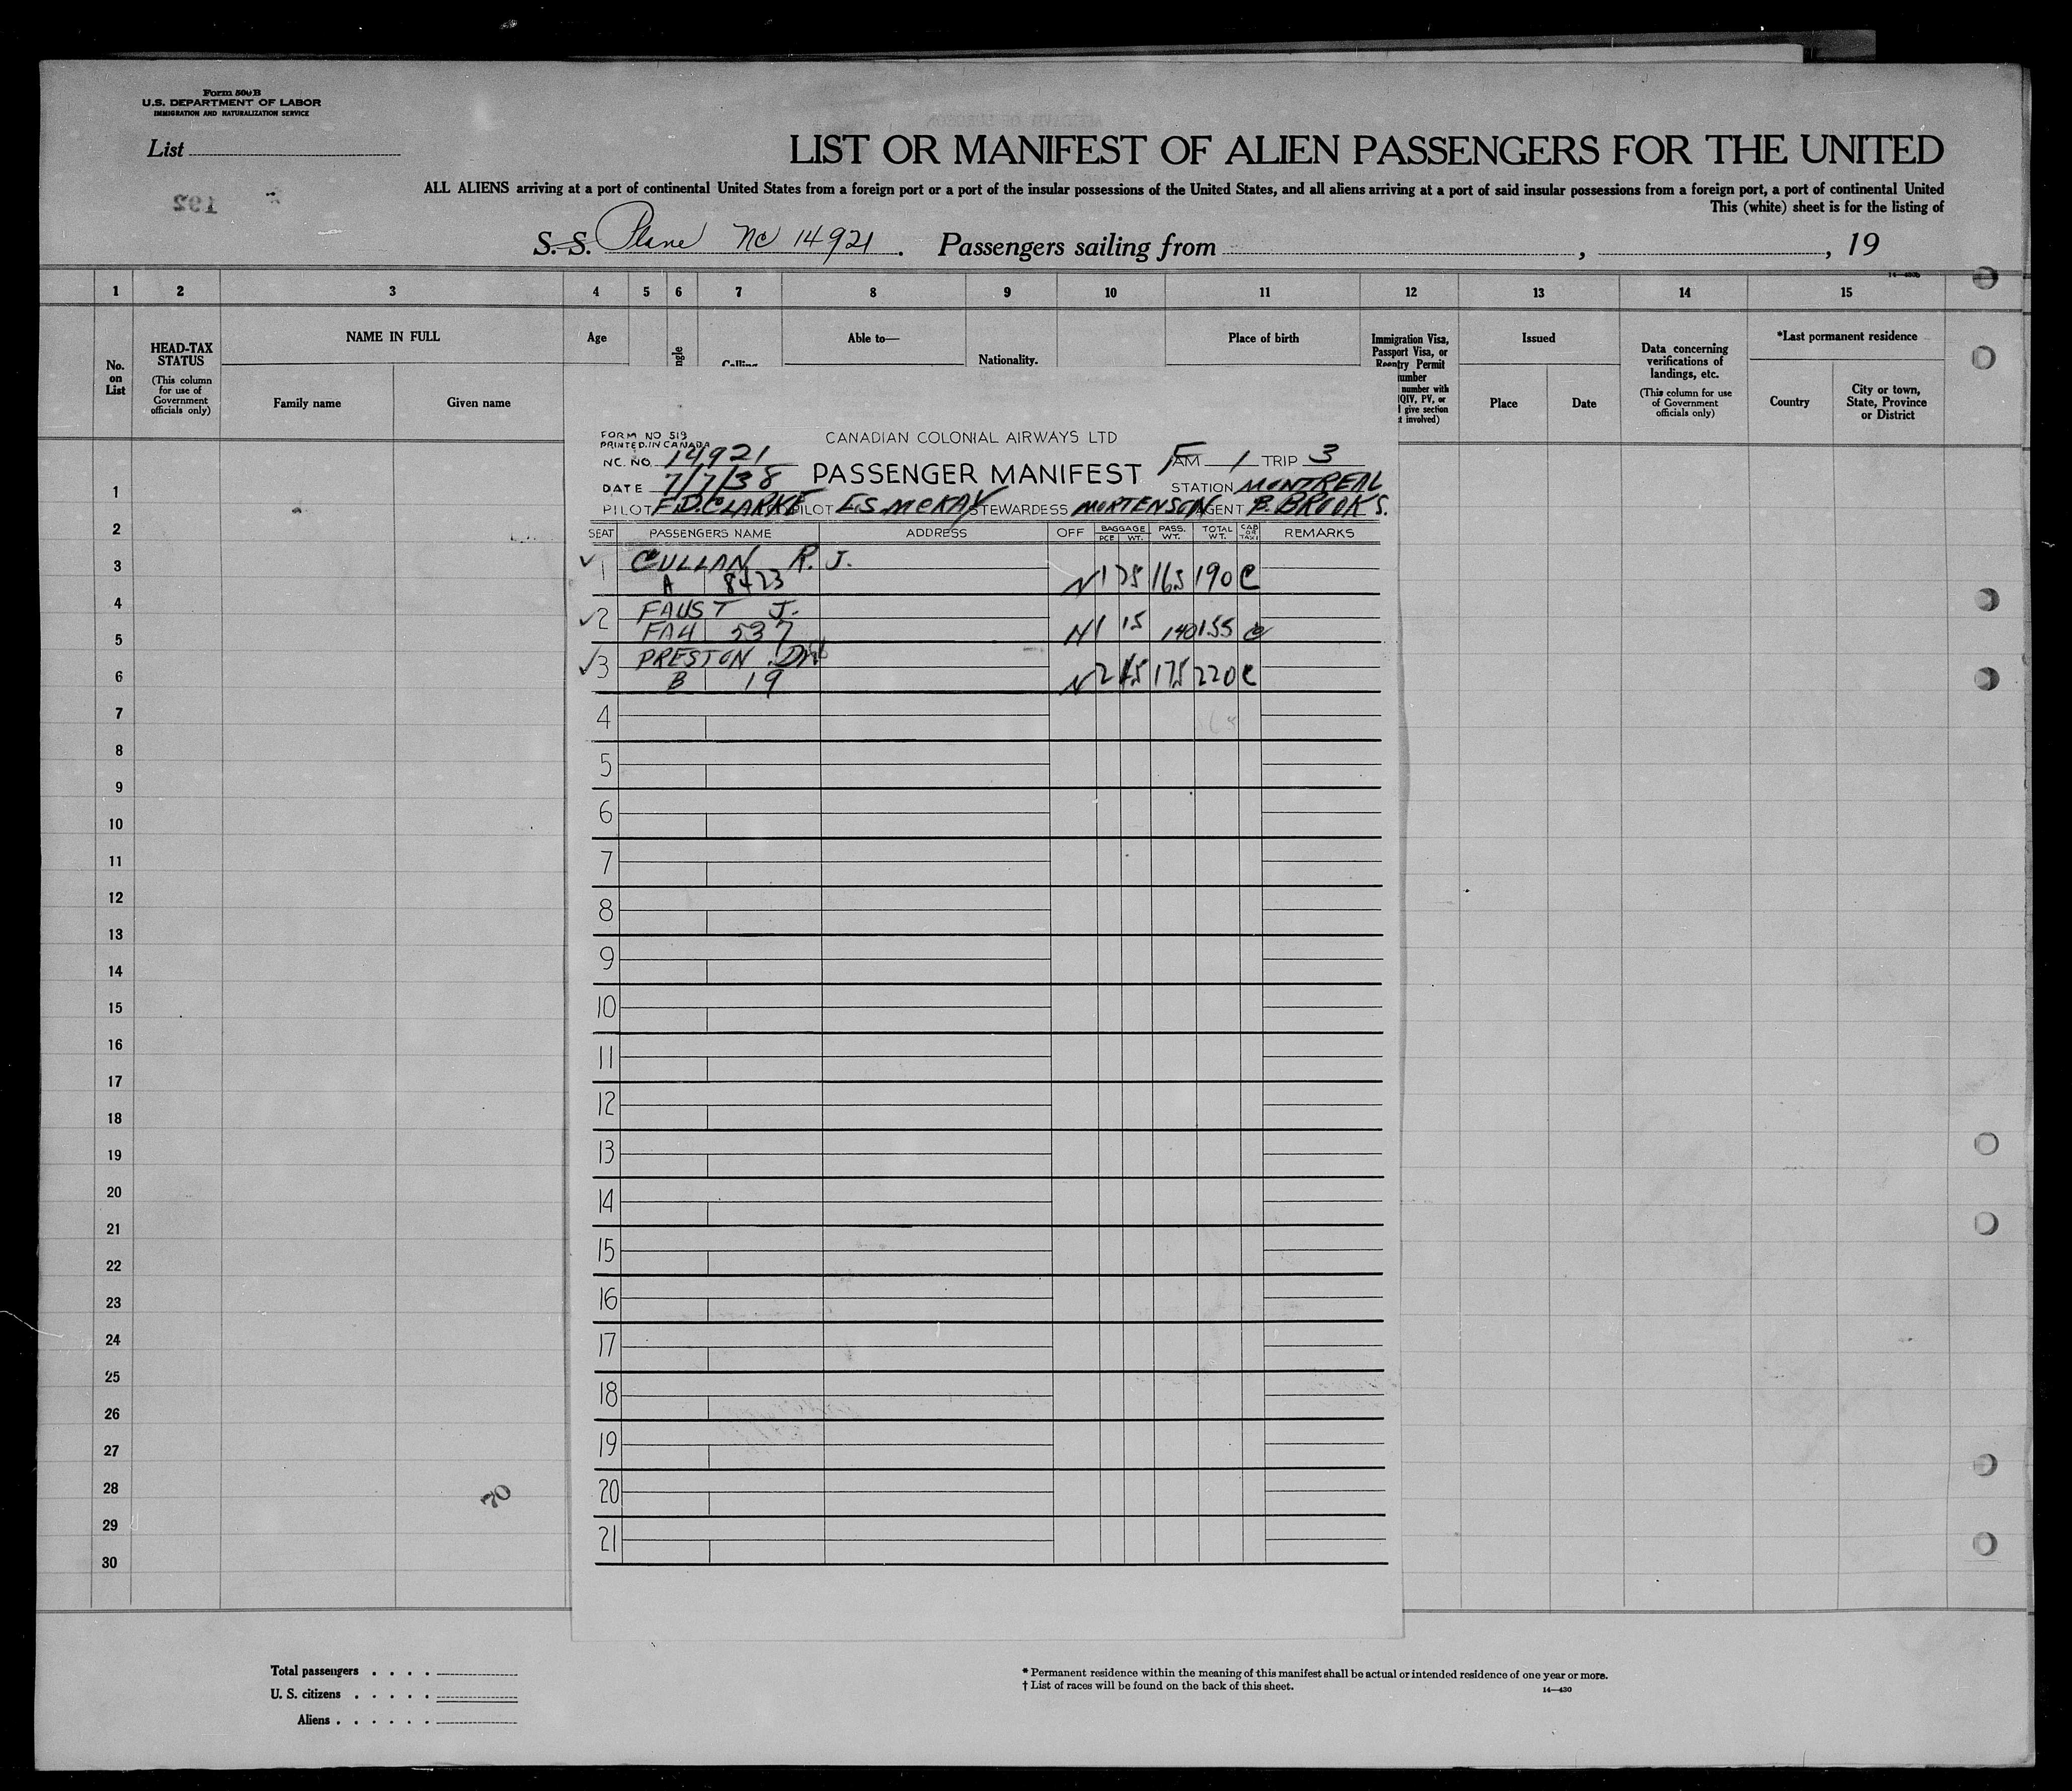 Form 500B
U.S. DEPARTMENT OF LABOR
IMMIGRATION AND NATURALIZATION SERVICE
List
192
LIST OR MANIFEST OF ALIEN PASSENGERS FOR THE UNITED
ALL ALIENS arriving at a port of continental United States from a foreign port or a port of the insular possessions of the United States, and all aliens arriving at a port of said insular possessions from a foreign port, a port of continental United
This (white) sheet is for the listing of
S. S. Plane NC 14921. Passengers sailing from , , 19
14—430b
1 2 3 4 5 6 7 8 9 10 11 12 13 14 15
No. on List
HEAD-TAX STATUS
(This column for use of Government officials only)
NAME IN FULL
Family name
Given name
Age
Calling
Able to—
Nationality.
Place of birth
Immigration Visa,
Passport Visa, or
Reentry Permit
number
number with
QIV, PV, or
give section
involved)
Issued
Place
Date
Data concerning
verifications of
landings, etc.
(This column for use
of Government
officials only)
*Last permanent residence
Country
City or town,
State, Province
or District
FORM NO 519
PRINTED.IN CANADA
CANADIAN COLONIAL AIRWAYS LTD
NC. NO. 14921
PASSENGER MANIFEST
FAM 1 TRIP 3
DATE 7/7/38
STATION MONTREAL
PILOT F.D.CLARKE PILOT E.S McKAY STEWARDESS MORTENSON AGENT B. BROOKS.
SEAT PASSENGERS NAME ADDRESS OFF BAGGAGE PCE WT. PASS. WT. TOTAL WT. CAB OR TAXI REMARKS
1 CULLAN R. J.
A 8423 N 1 25 165 190 C
2 FAUST J.
FAH 537 N 1 15 140 155 C
3 PRESTON
B 19 N 2 45 175 220 C
4
5
6
7
8
9
10
11
12
13
14
15
16
17
18
19
20
21
1
2
3
4
5
6
7
8
9
10
11
12
13
14
15
16
17
18
19
20
21
22
23
24
25
26
27
28
29
30
Total passengers . . . .
U. S. citizens . . . . .
Aliens . . . . . .
* Permanent residence within the meaning of this manifest shall be actual or intended residence of one year or more.
† List of races will be found on the back of this sheet.
14—430